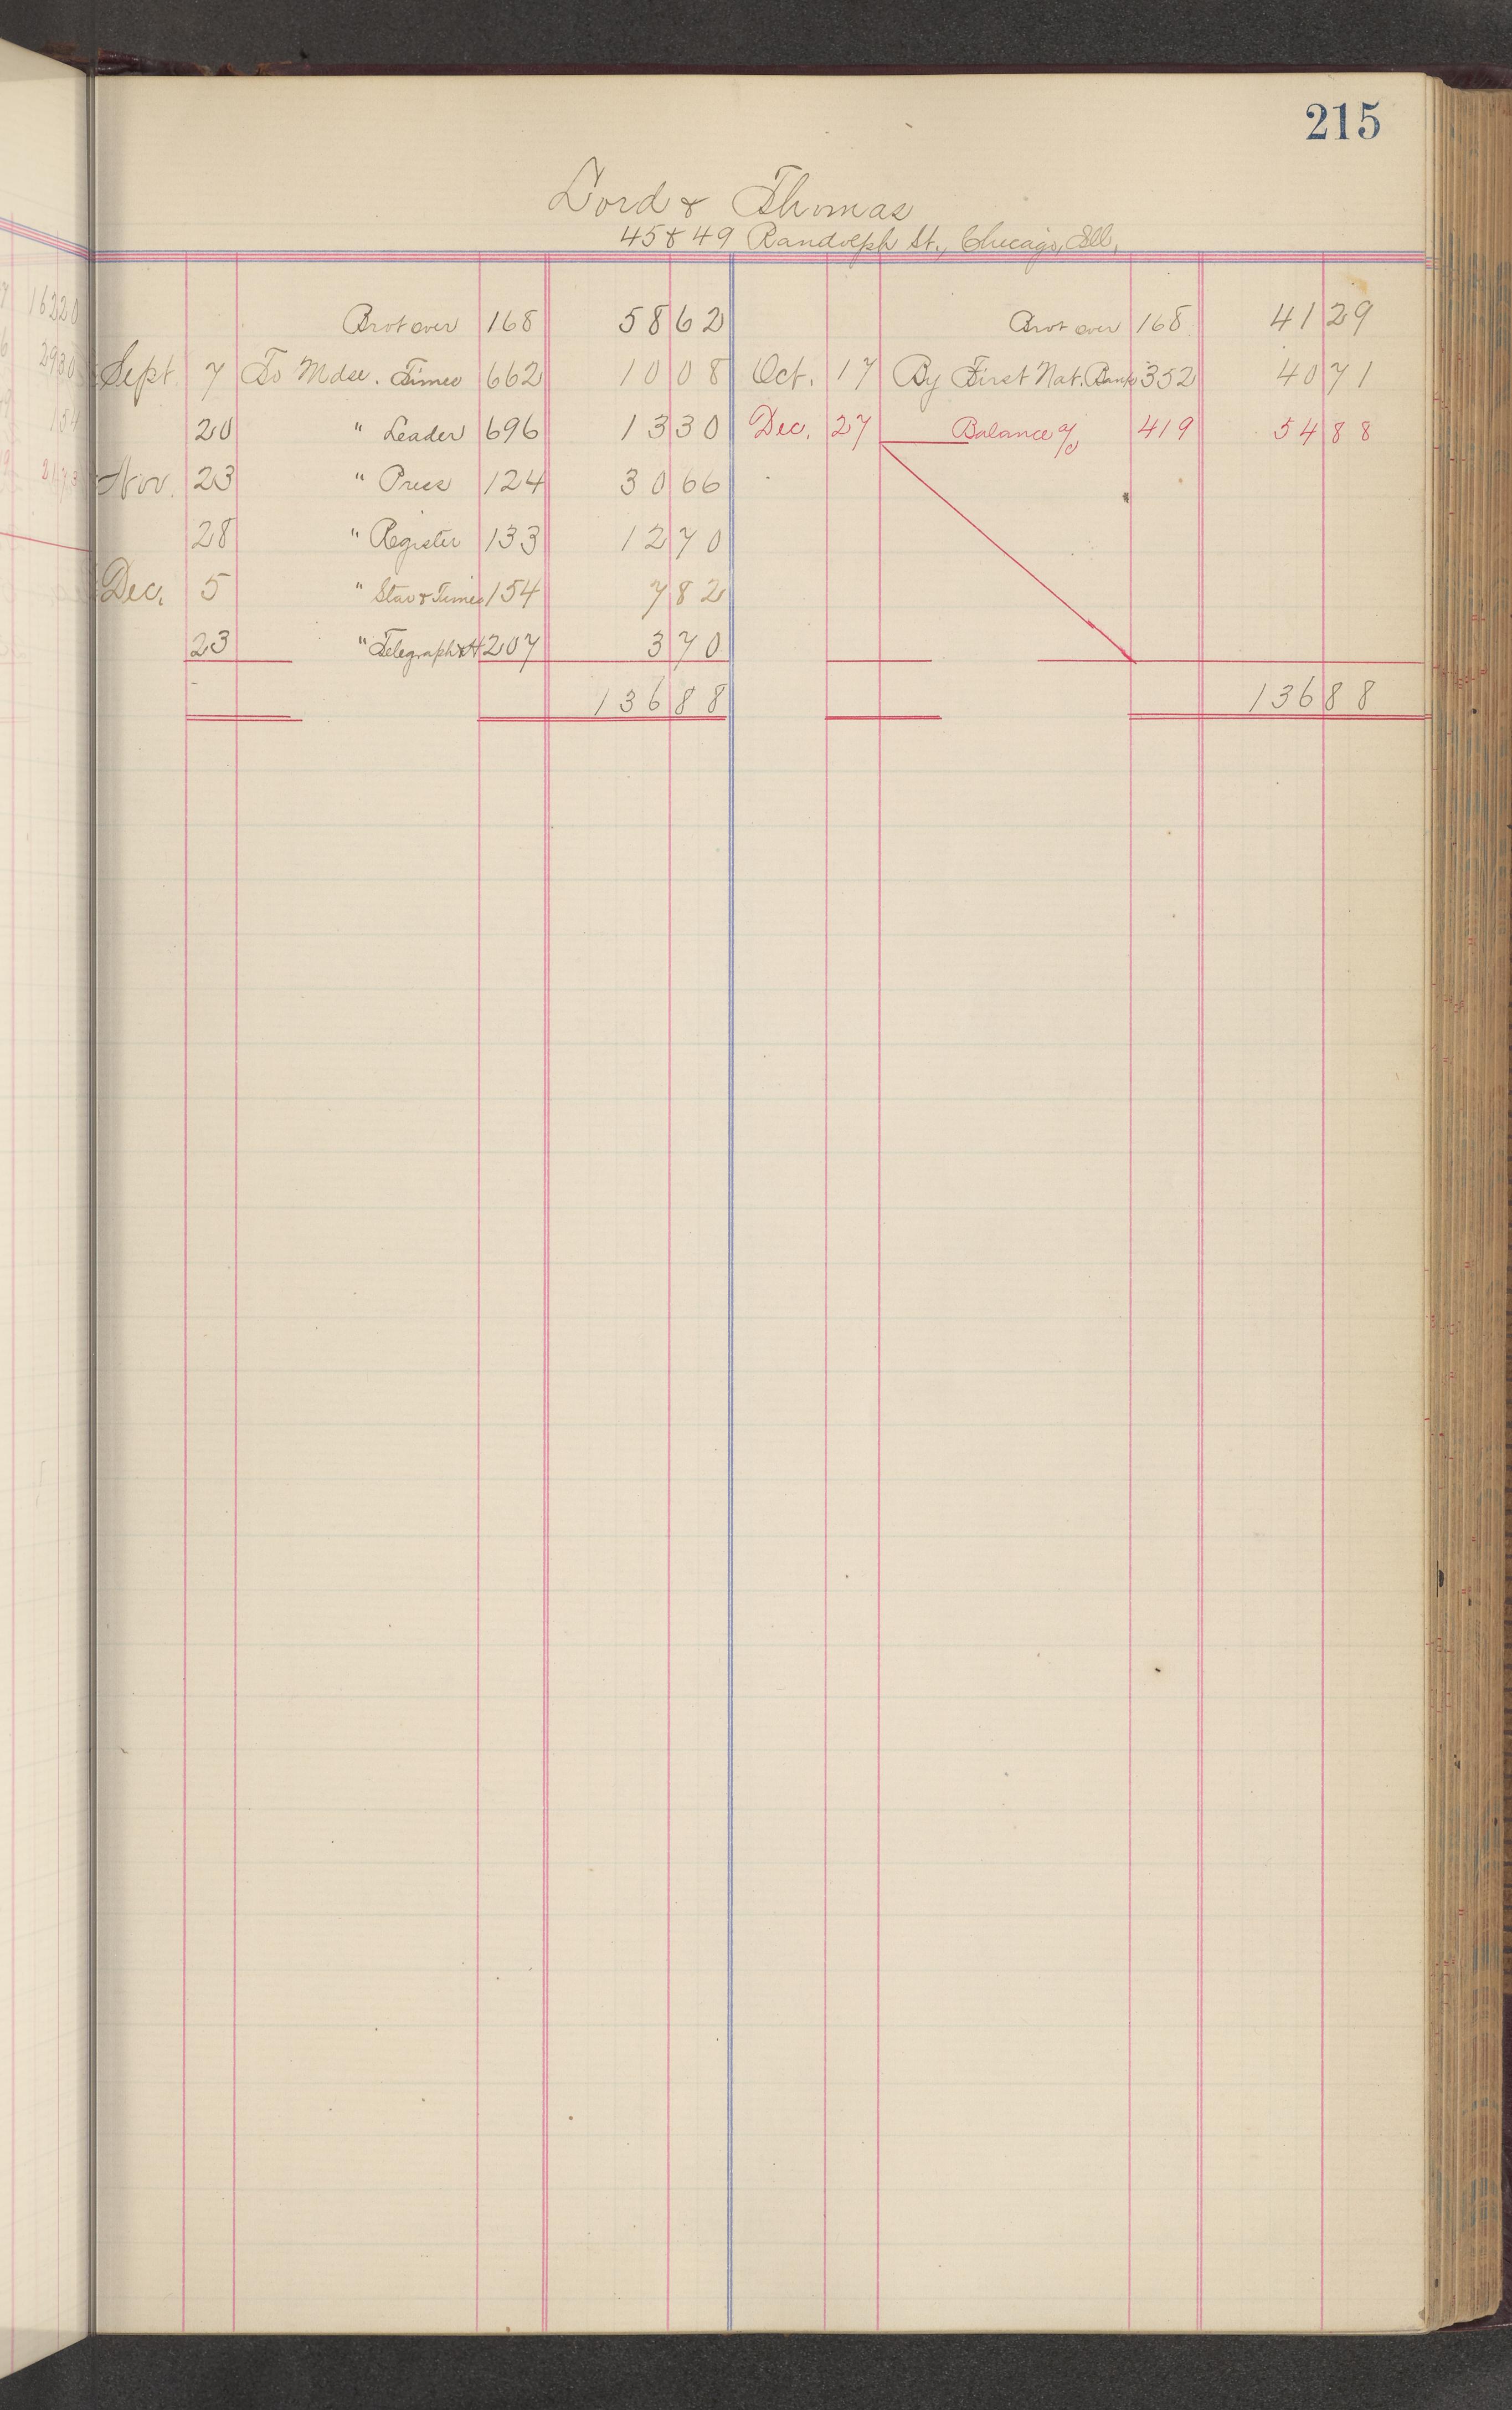 215
Lord & Thomas
45 & 49 Randolph St., Chicago, Ill.
Brot over 168 58 62 Brot over 168 41 29
Sept. 7 To Mdse. Times 662 10 08 Oct. 17 By First Nat. Bank 352 40 71
20 " Leader 696 13 30 Dec. 27 Balance 419 54 88
Nov. 23 " Press 124 30 66
28 " Register 133 12 70
Dec. 5 " Star & Times 154 7 82
23 " Telegraph & H 207 3 70
136 88 136 88
162 20
29 30